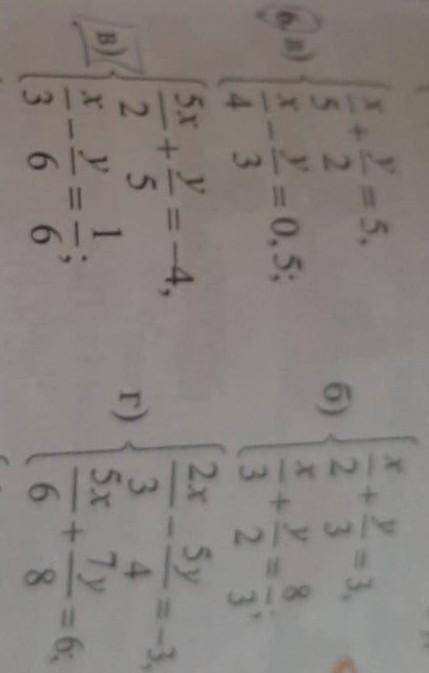 а) x/5 + y/2 = 5,
x/4 − y/3 = 0,5;
б) x/2 + y/3 = 3,
x/3 + y/2 = 8/3;
в) 5x/2 + y/5 = −4,
x/3 − y/6 = 1/6;
г) 2x/3 − 5y/4 = −3,
5x/6 + 7y/8 = 6;